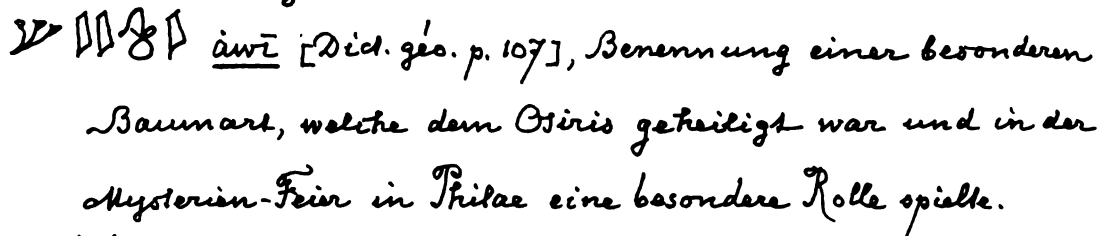 ȧwī [Dict. géo. p. 107], Benennung einer besonderen
Baumart, welche dem Osiris geheiligt war und in der
Mysterien-Feier in Philae eine besondere Rolle spielte.